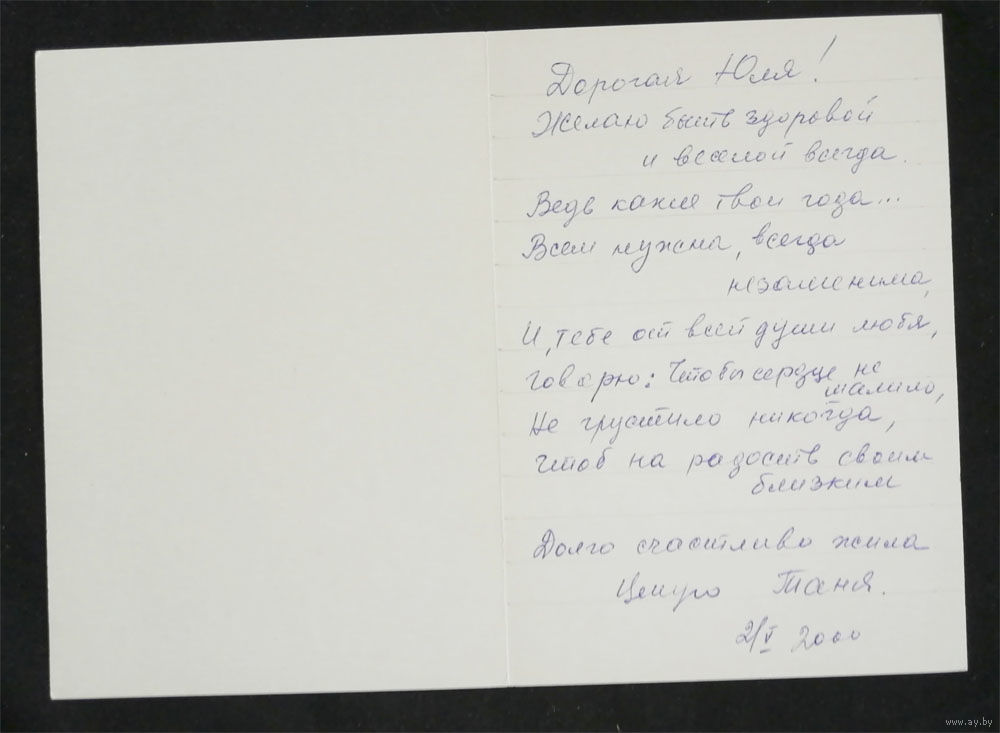 Дорогая Юля!
Желаю быть здоровой
и веселой всегда.
Ведь какие твои года...
Всем нужна, всегда
незаменима,
И, тебе от всей души любя,
говорю: Чтобы сердце не
шалило,
Не грустило никогда,
Чтоб на радость своим
близким
Долго счастливо жила
Целую Таня.
2/V 2000
www.ay.by